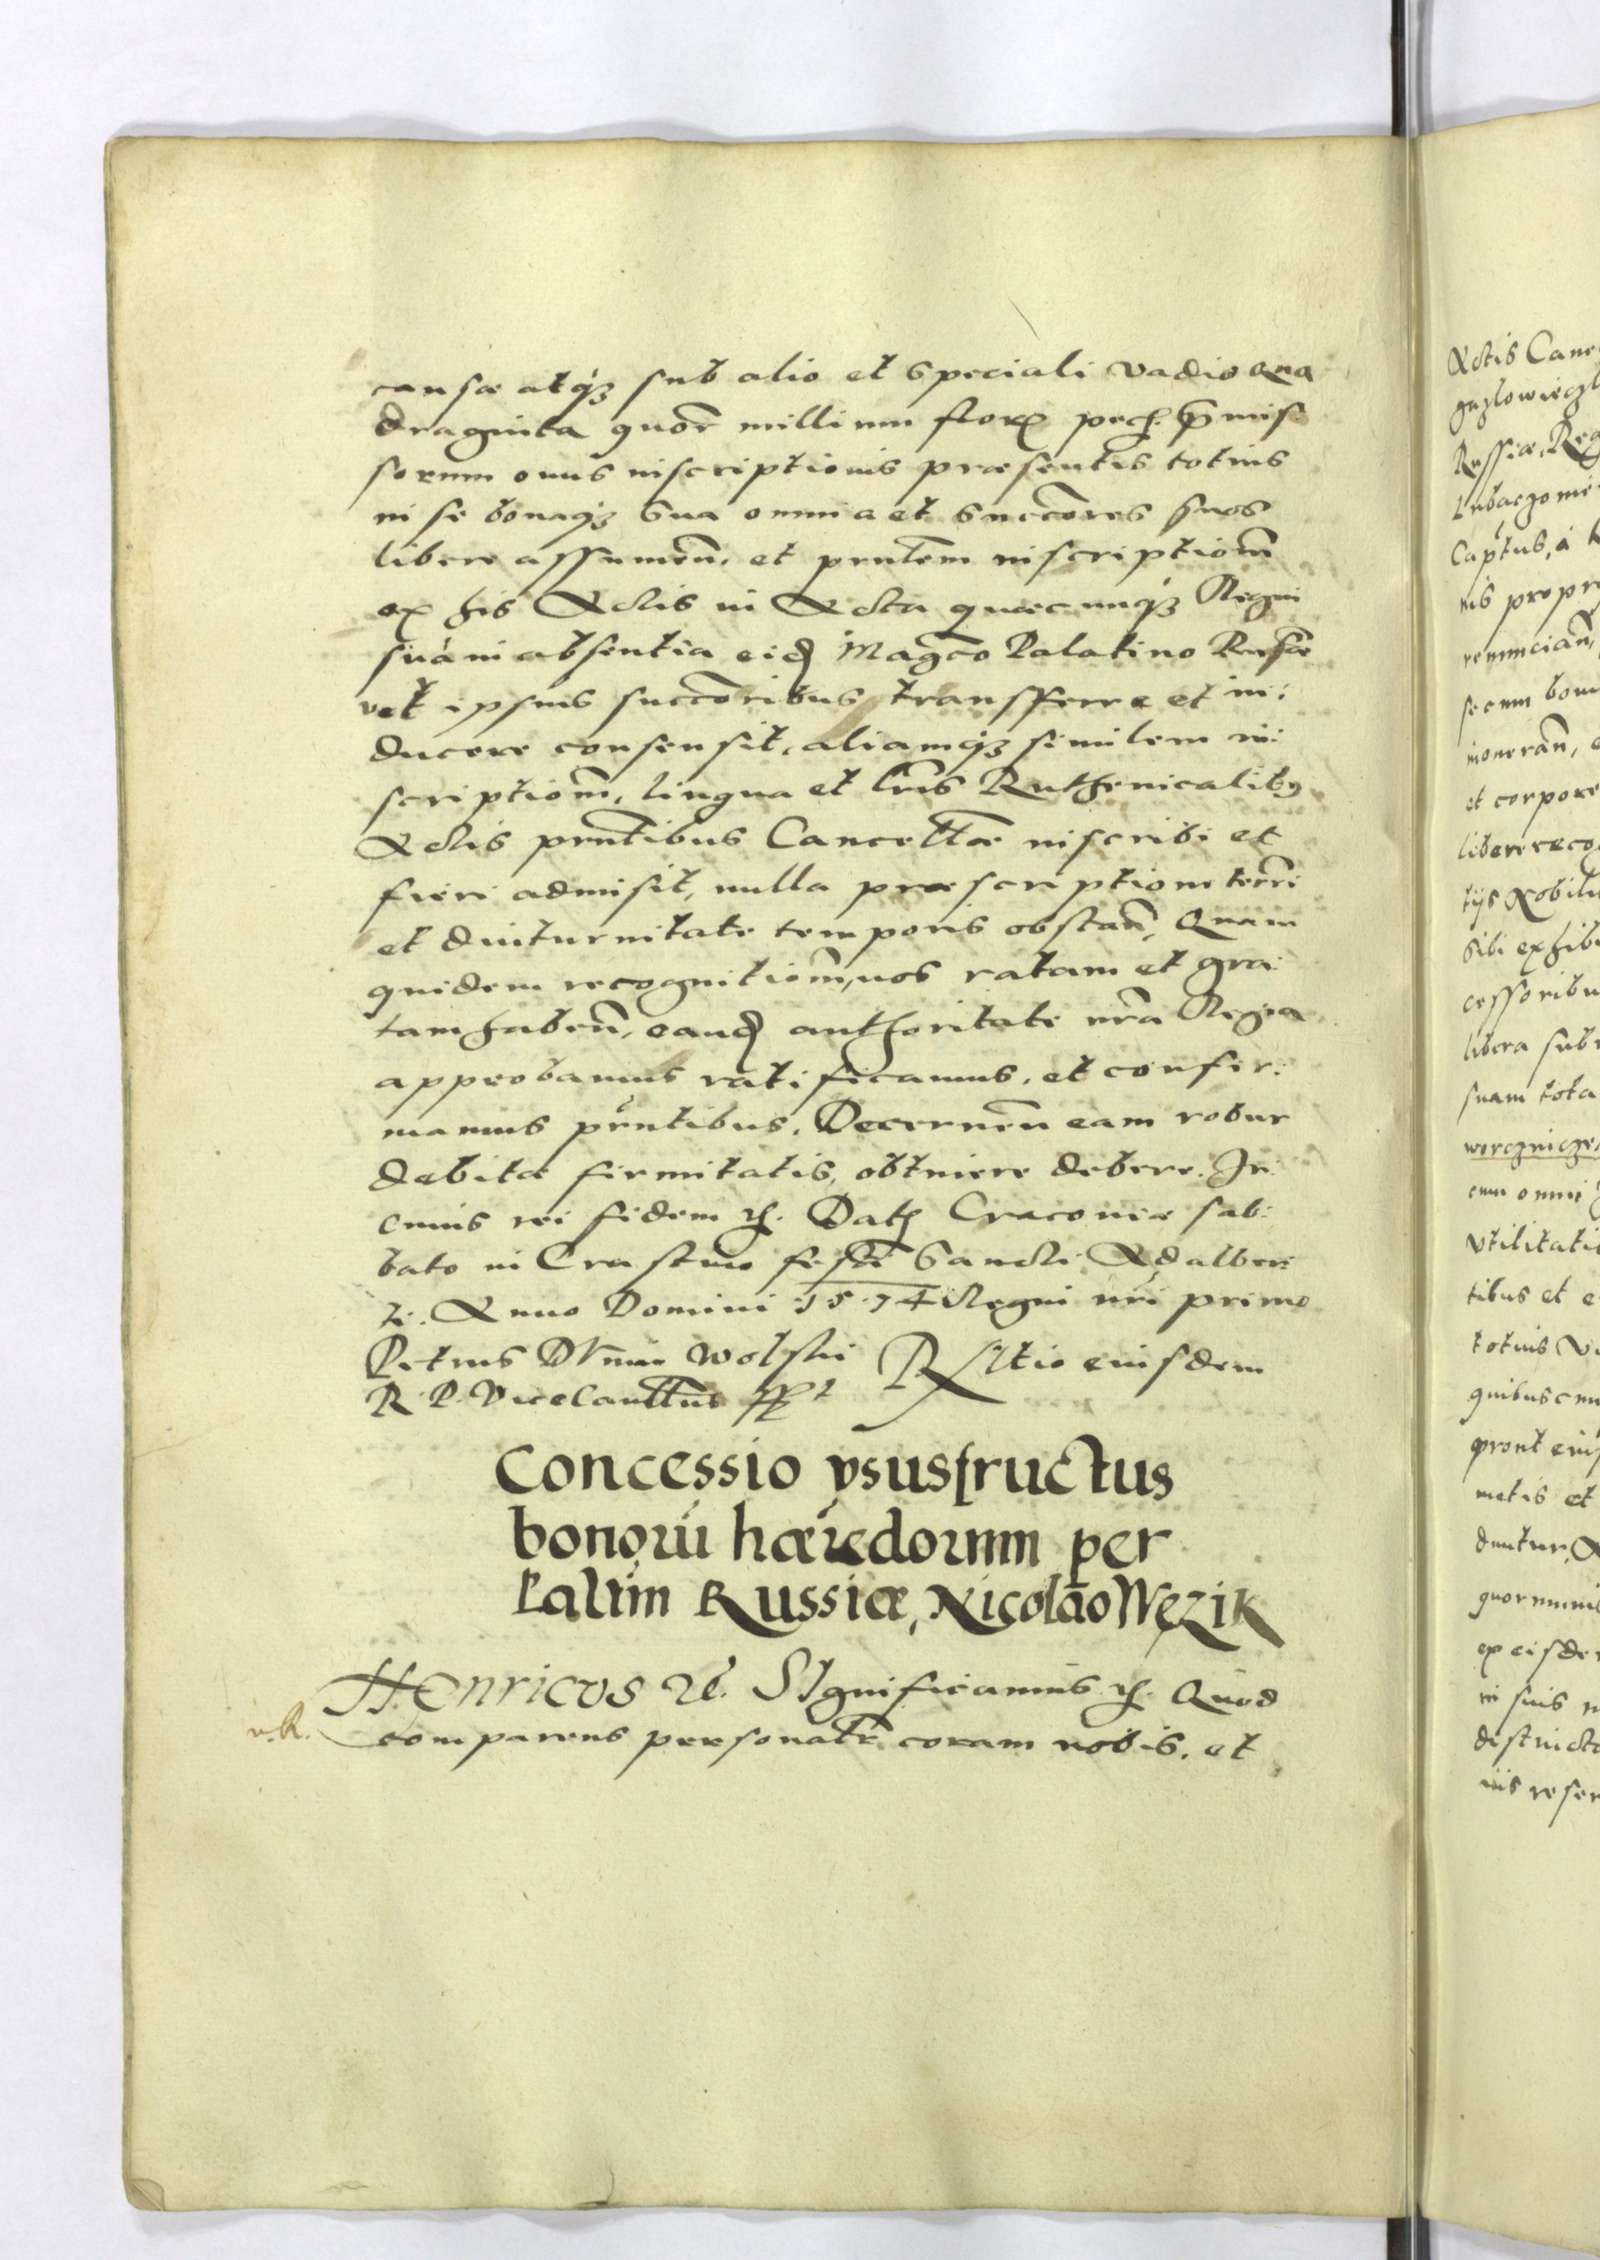 causæ atq₃ sub alio et speciali vadio qua
draginta quor̃ millium floř pecũ. p̃mis
sorum onus inscriptionis præsentis totius
in se bonaq₃ sua omnia et succõres suos
libere assumeñ. et pñtem inscriptiom̃
ex his Actis in Acta quæcunq₃ Regni
sua in absentia eid̃ Magco Palatino Russiæ
vel ipsius succõribus transfferre et in:
ducere consensit, aliamq₃ similem in:
scriptiom̃, lingua et lr̃is Ruthenicalibꝰ
Actis pñtibus Cancellæ inscribi et
fieri admisit, nulla præscriptione terr̃i
et diuturnitate temporis obstañ, Quam
quidem recognitiom̃, nos ratam et gra:
tam habeñ, eand̃ authoritate nr̃a Regia
approbamus ratificamus, et confir:
mamus pñtibus, Decerneñ eam robur
debitæ firmitatis, obtinere debere. In
cuius rei fidem ꝛc. Datˀ Cracoviæ sab:
bato in Crastino festi Sancti Adalber
ti. Anno Domini 1574 Regni nr̃i primo
Petrus Dunin Wolski
R. P. Vicecancellꝰ sspt
Rltio eiusdem
Concessio vsusfructus
bonorũ hæredorum per
Paltim Russiæ, Nicolao Wezik
Henricus ꝛc. SIgnificamus ꝛc. Quod
v. R.
comparens personalr̃ coram nobis, et
Actis Canc
Russiæ, Reg
Captus, á
nis propr
renunciañ,
secum bon
et corpore
libere recog
tijs Nobilu
sibi exhib
cessoribu
libera sub
suam tota
worczniczen
cum omni
vtilitati
tibus et e
totius
quibuscun
pront eius
metis et
quorumuis
ex eisde
in suis
distincta
uis reser